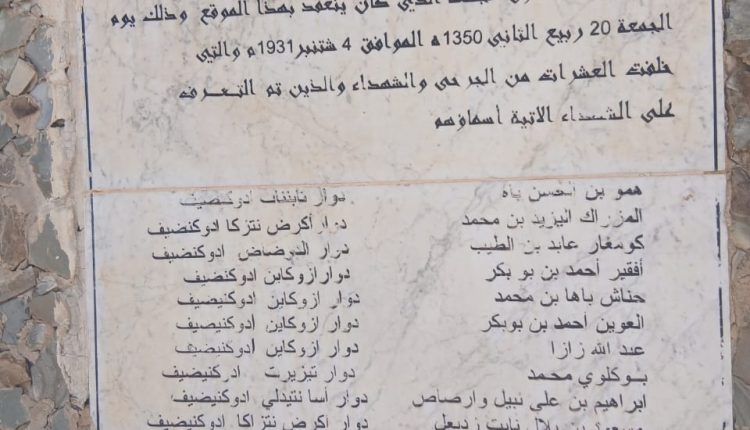 كان ينعقد بهذا الموقع وذلك يوم
الجمعة 20 ربيع الثاني 1350ه الموافق 4 شتنبر 1931م والتي
خلفت العشرات من الجرحى والشهداء والذين تم التعرف
على الشهداء الاتية أسماؤهم
همو بن الحسن باه دوار تابنتات ادوكنضيف
المزراك اليزيد بن محمد دوار أكرض نتزكا ادوكنضيف
كومغار عابد بن الطيب دوار الدضاض ادوكنضيف
أفقير أحمد بن بو بكر دوار ازوكاين ادوكنضيف
حناش باها بن محمد دوار ازوكاين ادوكنيضيف
العوين أحمد بن بوبكر دوار ازوكاين ادوكنيصيف
عبد الله زازا دوار ازوكاين ادوكنيضيف
بوكلوي محمد دوار تيزيرت ادوكنيضيف
ابراهيم بن علي نبيل وارصاص دوار أسانتيدلي ادوكنضيف
مسعود بن بلال نايت زديعل دوار أكرض نتزاكا ادوكنضيف